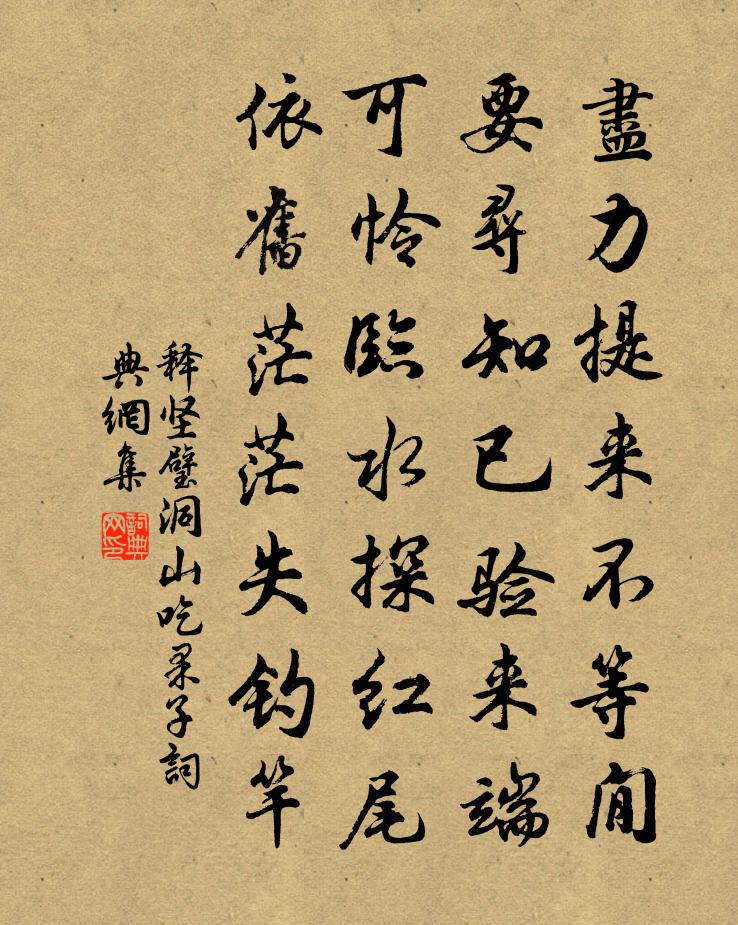 盡力提来不等閒
要尋知已验来端
可怜臨水探红尾
依舊茫茫失钓竿
释坚璧洞山吃果子詞
典網集
詞典
网印